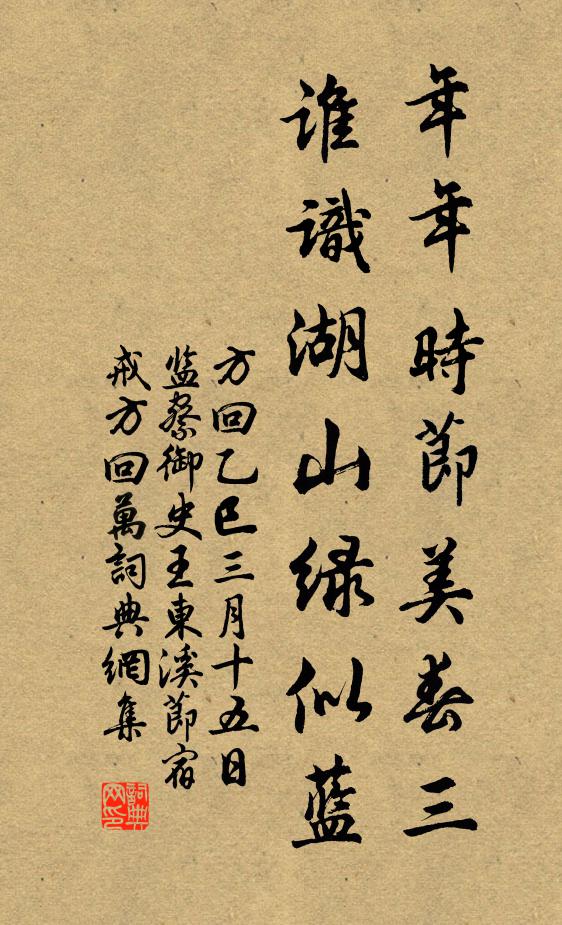 年年時節美春三
誰識湖山緑似藍
方回乙巳三月十五日
监察御史王東溪節宿
戒方回萬詞典網集
詞典
网印